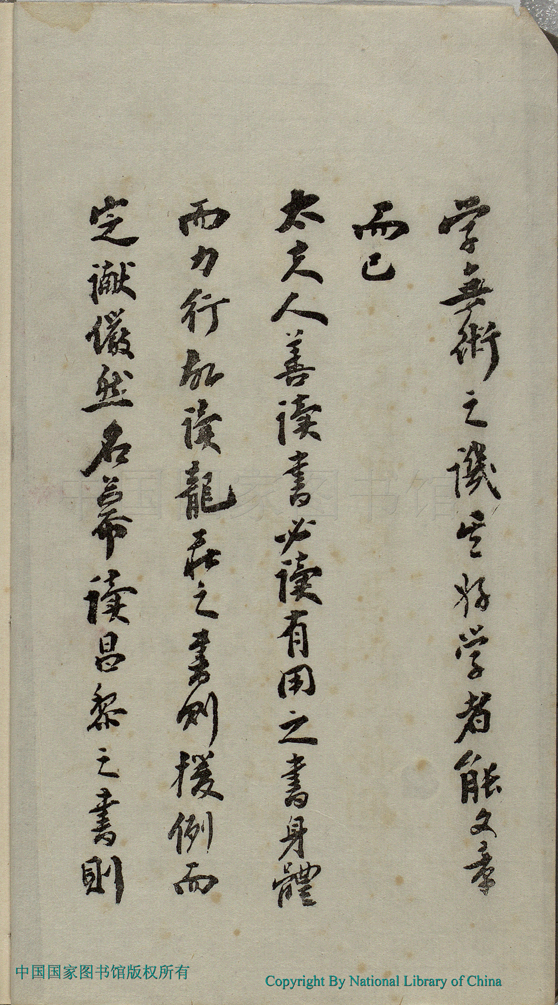 学無術之譏豈好学者能文章
而已
太夫人善读書必读有用之書身體
而力行故读龍莊之書则援例而
定谳儼然名幕读昌黎之書則
中国国家图书馆
中国国家图书馆版权所有
Copyright By National Library of China